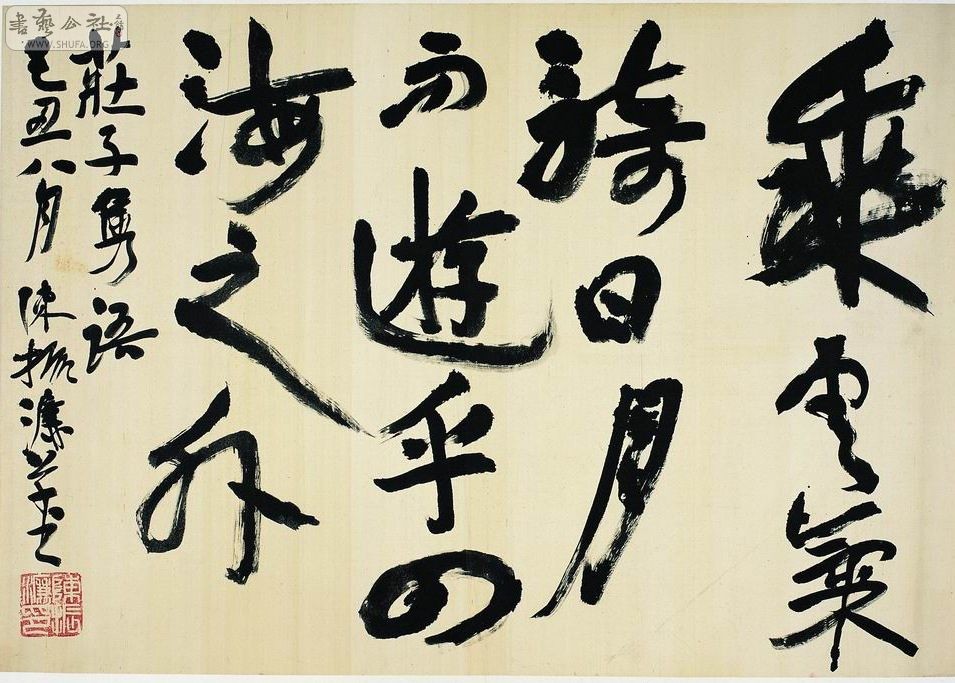 乘雲氣
騎日月
而遊乎四
海之外
莊子雋語
己丑八月 陳振濂書
陳振濂印
書藝公社
WWW.SHUFA.ORG